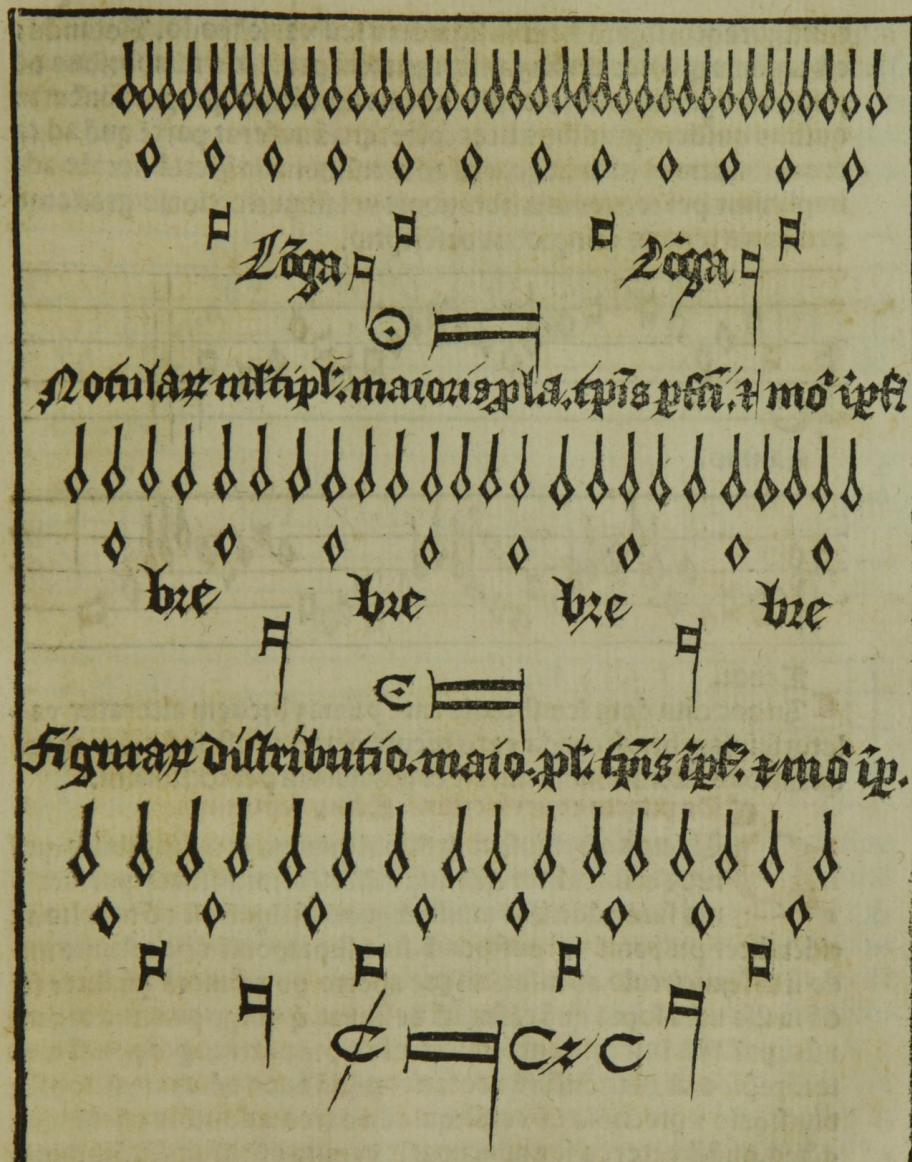 Lōga Lōga
Notulaꝝ mltipl'. maioris pla. tp̄is pfcī. ⁊ mō īpfc̄
bre bre bre bre
Figuraꝝ distributio. maio. pl. tp̄is īpfc̄. ⁊ mō īp.
C ⁊ C